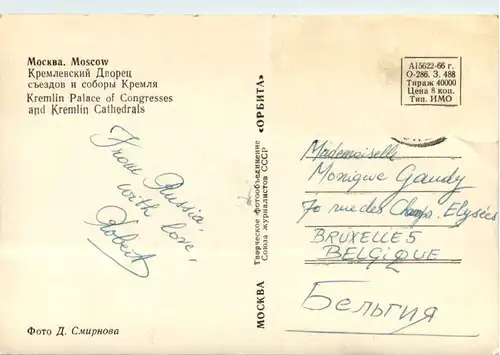 Москва. Moscow
Кремлевский Дворец
съездов и соборы Кремля
Kremlin Palace of Congresses
and Kremlin Cathedrals
From Russia,
with love,
Robert
Фото Д. Смирнова
МОСКВА «ОРБИТА»
Творческое фотообъединение
Союза журналистов СССР
А15622-66 г.
О-286. З. 488
Тираж 40000
Цена 8 коп.
Тип. ИМО
Mademoiselle
Monique Gaudy
70 rue des Champs. Elysées
BRUXELLES
BELGIQUE
Бельгия